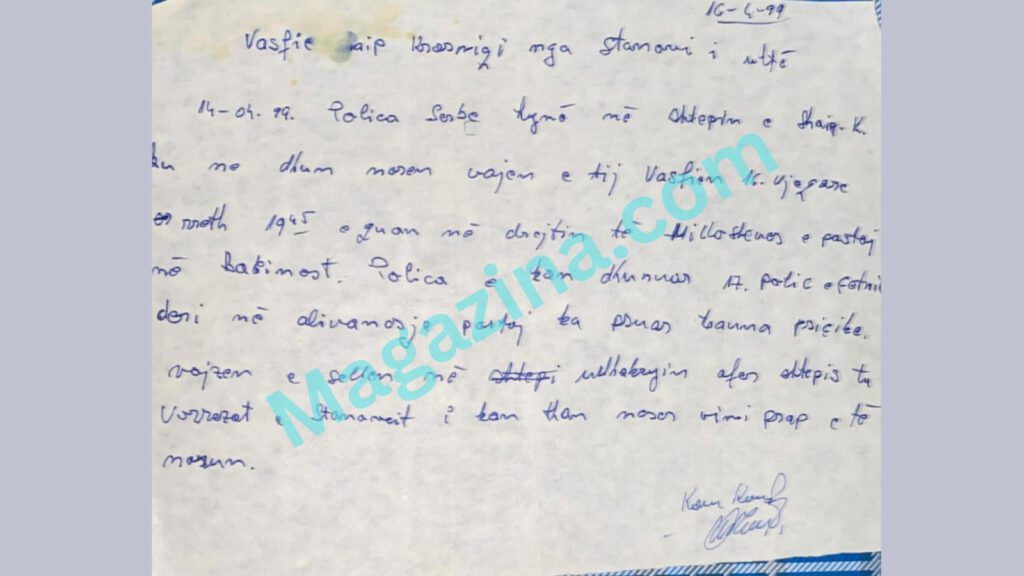 16-4-99
Vasfie aip Krasniqi nga Stanovci i ultë
14-04.99. Polica Serbe hynë në shtepin e Shaip. K.
ku me dhun moren vajzen e tij Vasfien 16. vjeqare
rreth 1945 e quan në drejtim të Milloshevos e pastaj
në Babimost. Polica e kan dhunuar 17. polic
deri në alivanosje pastaj ka psuar trauma psiqike.
vajzen e sellen në shtepi udhekryqin afer shtepis tu
Vorrezat e Stanovcit i kan than neser vimi prap e të
marrum.
Magazina.com